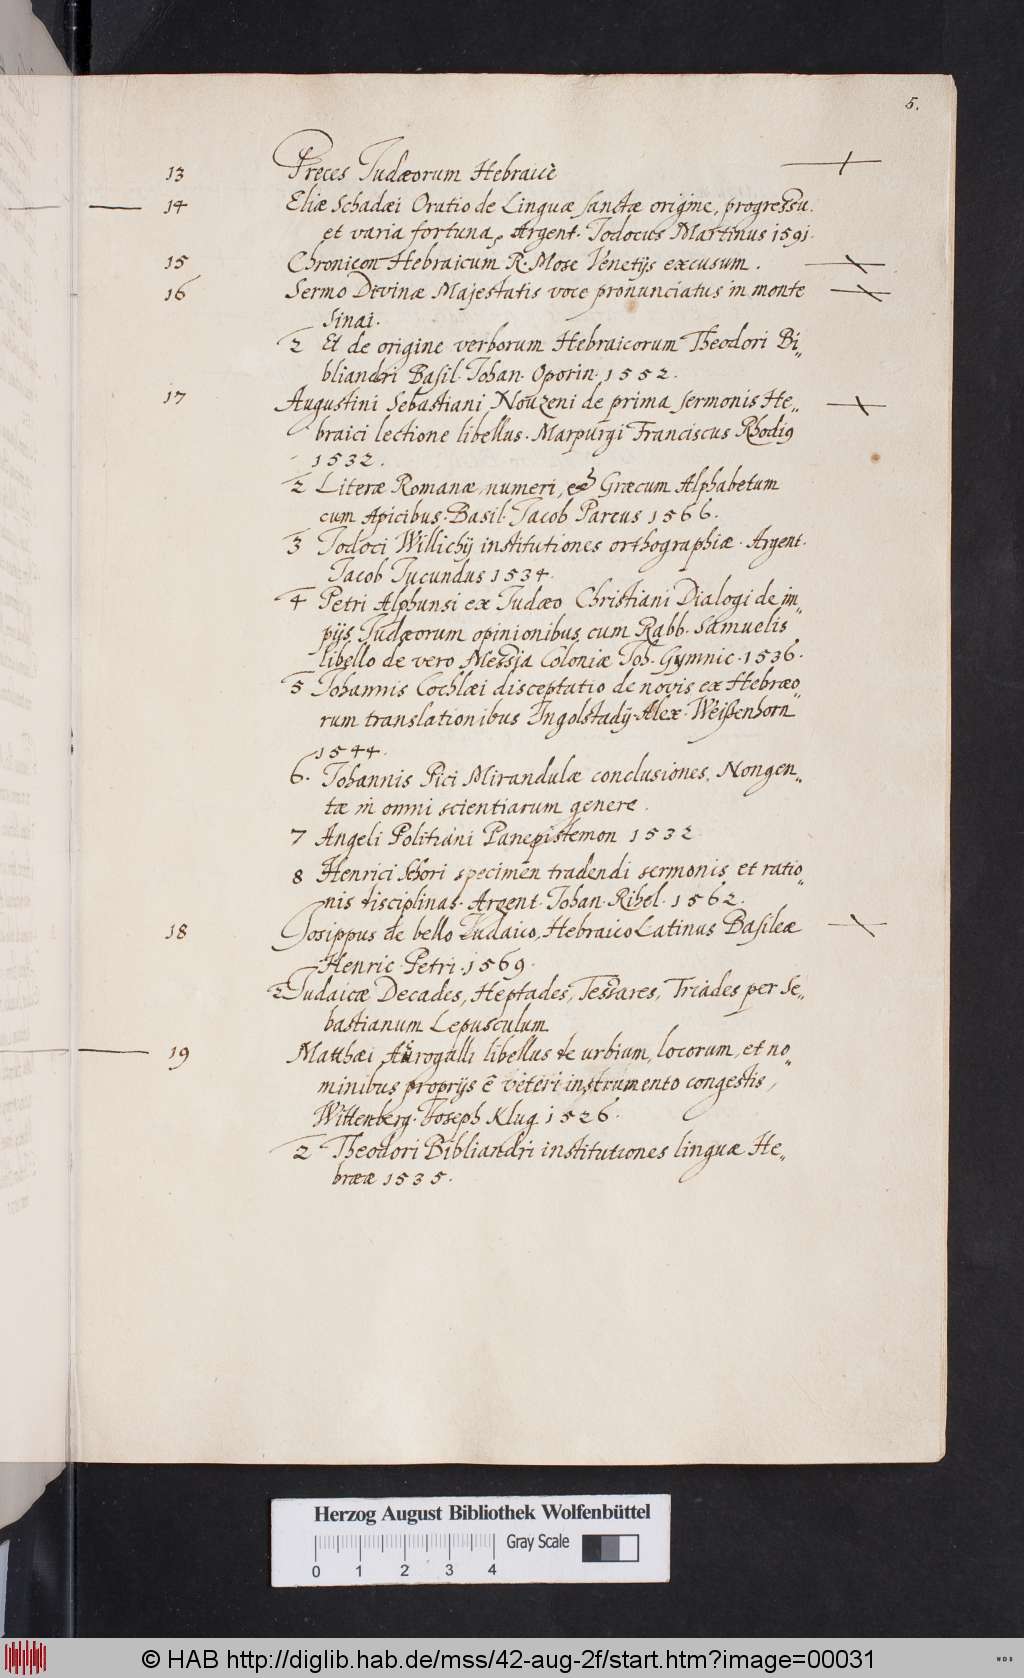 5.
13 Preces Judæorum Hebraicè
14 Eliæ Schadæi Oratio de Linguæ sanctæ origine, progressu.
et varia fortuna, Argent. Jodocus Martinus 1591.
15 Chronicon Hebraicum R. Mose Venetijs excusum.
16 Sermo Divinæ Majestatis voce pronunciatus in monte
Sinai.
2 Et de origine verborum Hebraicorum Theodori Bi„
bliandri Basil. Johan. Oporin. 1552.
17 Augustini Sebastiani Nouzeni de prima sermonis He„
braici lectione libellus. Marpurgi Franciscus Rhodig
1532.
2 Literæ Romanæ, numeri, et Græcum Alphabetum
cum Apicibus. Basil. Jacob Parcus 1566.
3 Jodoci Willichij institutiones orthographiæ. Argent.
Jacob Jucundus 1534.
4 Petri Alphunsi ex Judæo Christiani Dialogi de im„
pijs Judæorum opinionibus cum Rabb. Samuelis
libello de vero Messia Coloniæ Joh. Gymnic. 1536.
5 Johannis Cochlæi disceptatio de novis ex Hebræo„
rum translationibus Ingolstadij. Alex. Weißenhorn
1544.
6. Johannis Pici Mirandulæ conclusiones. Nongen„
tæ in omni scientiarum genere.
7 Angeli Politiani Panepistemon 1532
8 Henrici Schori specimen tradendi sermonis et ratio„
nis disciplinas. Argent. Johan. Ribel. 1562.
18 Josippus de bello Judaico, Hebraico Latinus Basileæ
Henric. Petri. 1569.
2 Judaicæ Decades, Heptades, Tessares, Triades per Se„
bastianum Lepusculum
19 Matthæi Aurogalli libellus de urbium, locorum, et no„
minibus proprijs è veteri instrumento congestis,
Wittenberg. Joseph Klug 1526.
2 Theodori Bibliandri institutiones linguæ He„
brææ 1535.
Herzog August Bibliothek Wolfenbüttel
Gray Scale
0 1 2 3 4
© HAB http://diglib.hab.de/mss/42-aug-2f/start.htm?image=00031